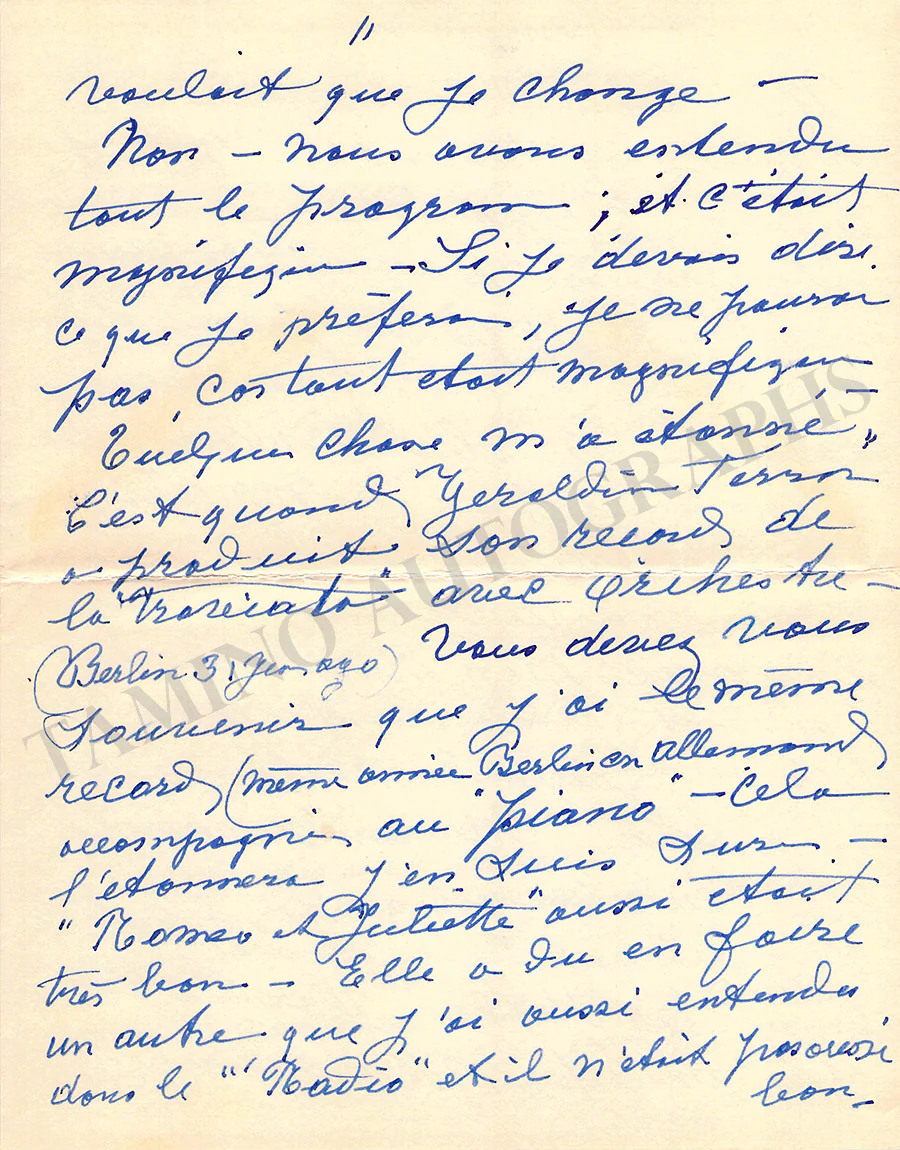 "
voulait que je change —
Non — nous avons entendu
tout le program ; et c'était
magnifique — Si je devais dire
ce que je préferai, je ne pourai
pas, car tout etait magnifique
Quelque chose m'a étonné —
C'est quand "Geraldin Farrar"
a produit son record de
la "Traviata" avec Orchestre —
(Berlin 31 years ago) Vous devez vous
souvenir que j'ai le même
record (même année Berlin en Allemand)
accompagné au "piano" — Cela
l'etonnera j'en suis sure —
"Romeo et Juliette" aussi etait
très bon — Elle a du en faire
un autre que j'ai aussi entendu
dans le "Radio" et il n'était pas aussi
bon —
TAMINO AUTOGRAPHS